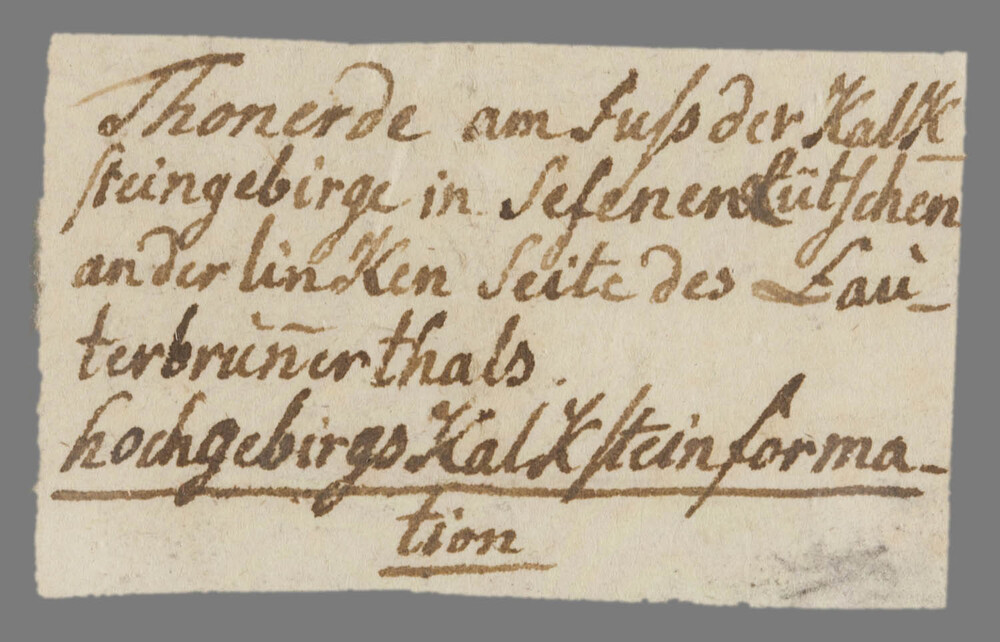 Thonerde am Fuſs der Kalk-
ſteingebirge in Sefenen Lütſchen
an der linken Seite des Lau-
terbrun̄erthals.
hochgebirgs Kalkſteinforma-
tion